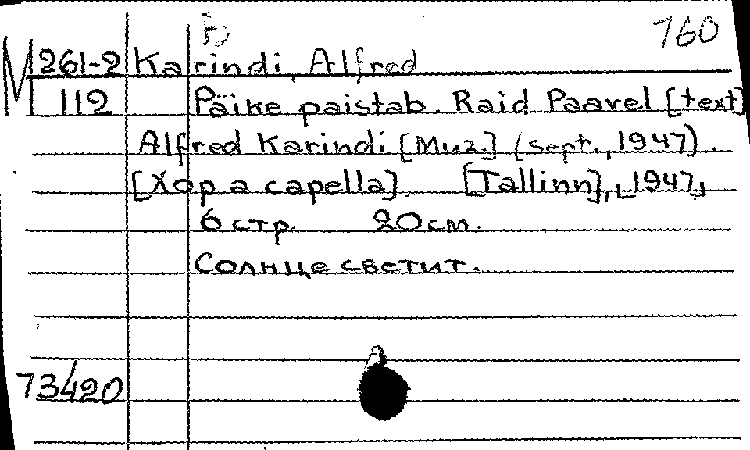 760
M 261-2 Karindi, Alfred
112 Päike paistab. Raid Paavel [text]
Alfred Karindi [Muz.] (sept., 1947).
[Хор a capella]. [Tallinn], 1947,
6 стр. 20 см.
Солнце светит.
73420